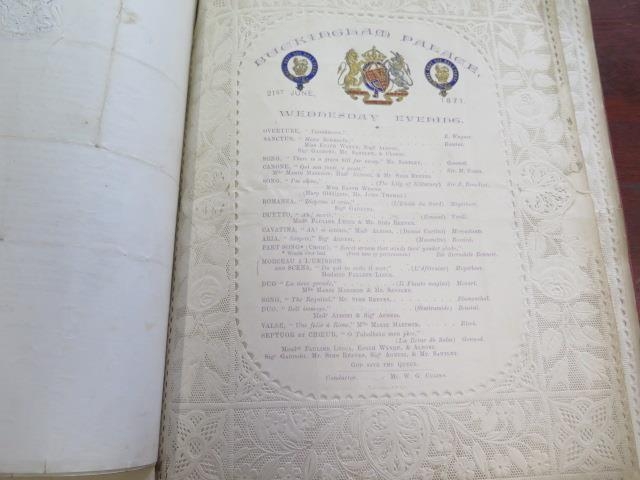 BUCKINGHAM PALACE,
21ST JUNE, 1871.
WEDNESDAY EVENING.
OVERTURE, "Tannhäuser," R. Wagner.
SANCTUS, "Messe Solennelle," Rossini.
MISS EDITH WYNNE, SIGR AGNESI,
SIGR GARDONI, MR. SANTLEY, & CHORUS.
SONG, "There is a green hill far away," MR. SANTLEY, Gounod.
CANONE, "Qual son tenti, e questi,"
MLLE MARIE MARIMON, MADE ALBONI, & MR SIMS REEVES.
SONG, "I'm alone," (The Lily of Killarney) Sir J. Benedict.
MISS EDITH WYNNE
(Harp Obbligato, MR. JOHN THOMAS.)
ROMANZA, (L'Etoile du Nord) Meyerbeer.
SIGR GARDONI.
DUETTO, "Ah! morir," (Ernani) Verdi.
MADE PAULINE LUCCA & MR SIMS REEVES.
CAVATINA, MADE ALBONI, Meyerbeer.
ARIA, "Sorgete," SIGR AGNESI, (Maometto) Rossini.
PART SONG (Choir) "Sweet stream that winds thro' yonder glade," Sir Sterndale Bennett.
MORCEAU A L'UNISSON
and SCENA, (L'Africaine) Meyerbeer.
MADAME PAULINE LUCCA.
DUO "Là dove prende," (Il Flauto magico) Mozart.
MLLE MARIE MARIMON & MR. SANTLEY.
SONG, "The Requital," MR. SIMS REEVES, Blumenthal.
DUO, "Bell' imago," (Semiramide) Rossini.
MADE ALBONI & SIGR AGNESI.
VALSE, "Una folie à Rome," MLLE MARIE MARIMON, Ricci.
SEPTUOR et CHŒUR, "O Tubalkaïn mon père,"
(La Reine de Saba) Gounod.
MESDES PAULINE LUCCA, EDITH WYNNE, & ALBONI,
SIGR GARDONI, MR. SIMS REEVES, SIGR AGNESI, & MR. SANTLEY.
GOD SAVE THE QUEEN.
Conductor MR. W. G. CUSINS.